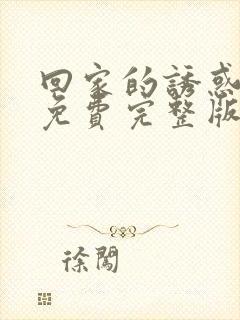 回家的誘惑
免費完整版
徐闖